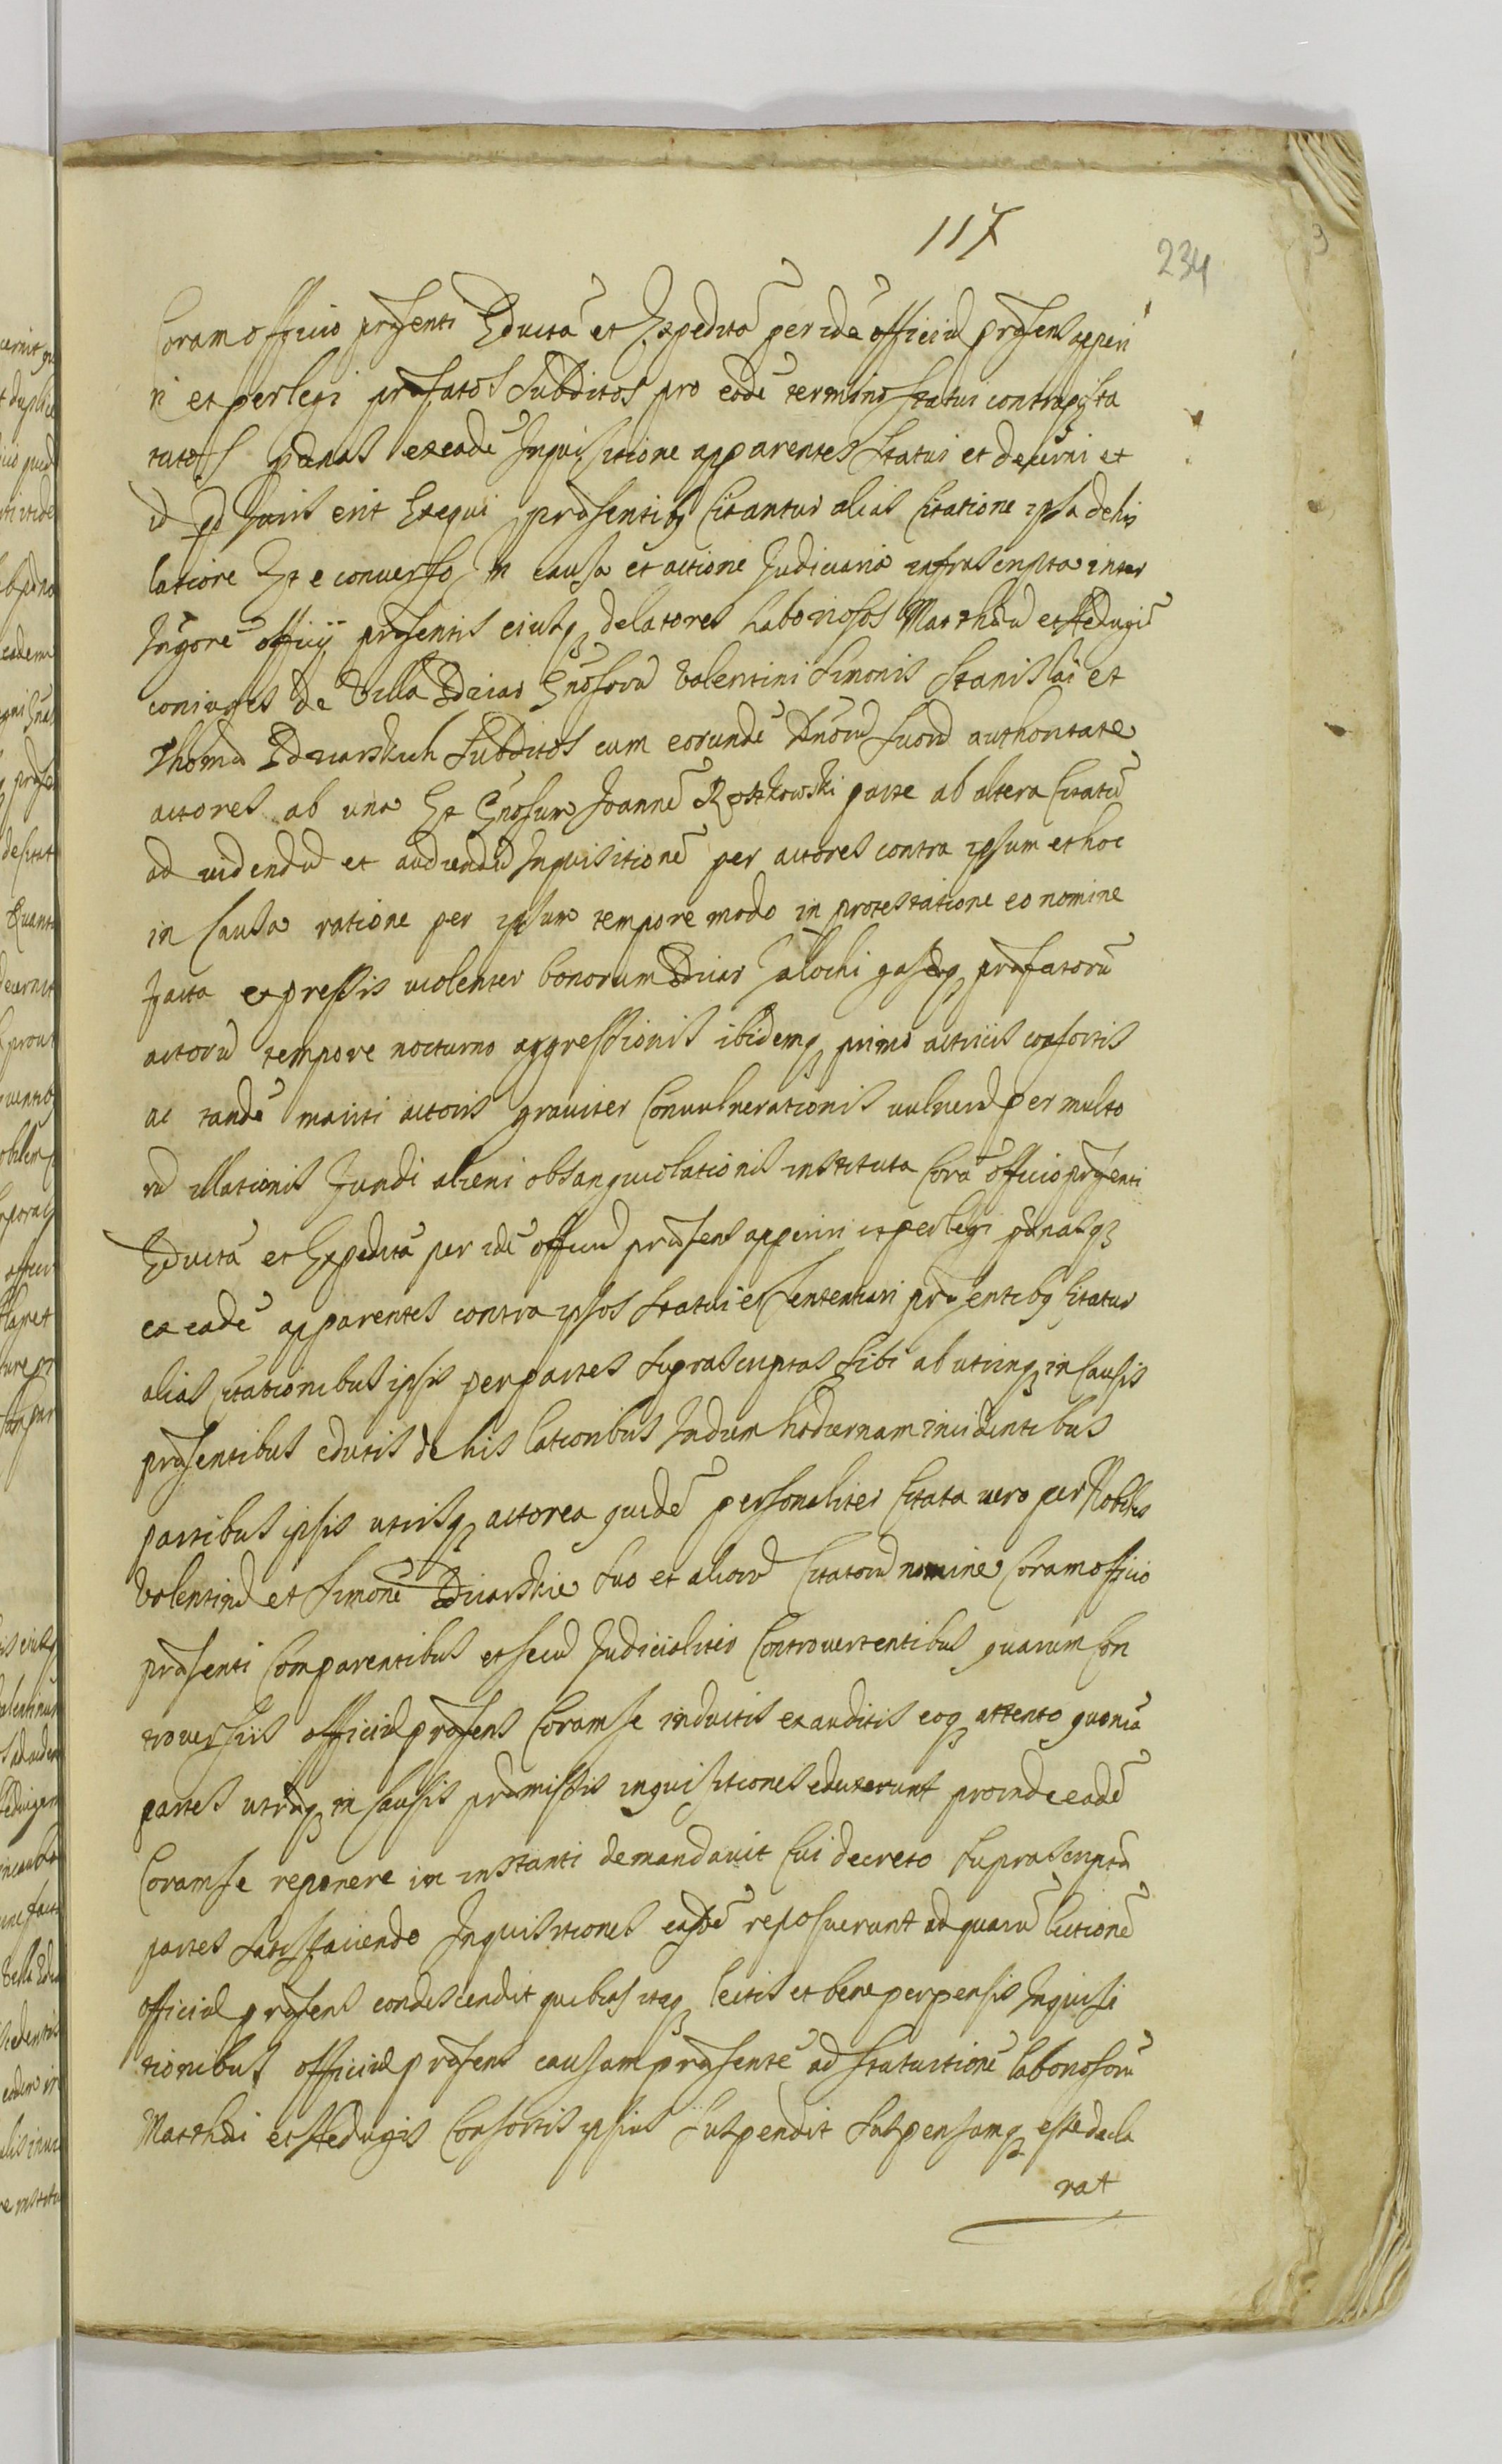 117
234
Coram officio præsenti Educta᷉ et Expedita᷉ per ide᷉ officiu᷉ præsens apperi
ri et perlegi præfatos Subditos pro eode᷉ termino statui contraq̃ sta
tutos pænas ex eade᷉ Inquisitione apparentes statui et decerni et
id qd Juris erit Exequi præsentibq Citantur alias Citatione ipsa de his
latiore Et e conuerso In causa et actione Judiciaria infrascripta inter
officij præsentis eiusq delatores Laboriosos Matthæu᷉ et Hedugie᷉
coniuges de Villa Zdziar Gnosoru᷉ Valentini Simonis Stanislai et
Thomæ Zdziarskich Subditos cum eorunde᷉ Dnoru᷉ suoru᷉ authoritate
actores ab una Et Gnosum Joanne᷉ Roszkowski parte ab altera Citatu᷉
ad uidendu᷉ et audiendu᷉ Inquisitione᷉ per actores contra ipsum et hoc
in Causa ratione per ipsum tempore modo in protestatione eo nomine
facta expressis uiolenter bonorum Zdziar præfatoru᷉
actoru᷉ tempore nocturno aggressionis ibidemq primo actricis consortis
ac tande᷉ mariti actoris grauiter Conuulnerationis uulneru᷉ per multo
ru᷉ illationis fundi alieni obsanguiolationis instituta Cora᷉ officio præsenti
Educta᷉ et Expedita᷉ per ide᷉ officiu᷉ præsens apperiri et perlegi pænasq
ex eade᷉ apparentes contra ipsos statui et Sententiari præsentibq Citatur
alias citationibus ipsis per partes suprascriptas Sibi ab utrinq in Causis
præsentibus edutis de his lationibus In diem hodiernam incidentibus
partibus ipsis utrisq actorea quide᷉ personaliter Citata uero per Nobiles
Valentinu᷉ et Simone᷉ Zdziarskie suo et alioru᷉ Citatoru᷉ nomine Coram officio
præsenti Comparentibus et secu᷉ Judicialiter Controuertentibus quarum Con
trouersiis officiu᷉ præsens Coram se inductis exauditis eoq attento quonia᷉
partes utræq in Causis præmissis inquisitiones eduxerunt proinde eade᷉
Coram se reponere in instanti demandauit Cui decreto suprascriptæ
partes satisfaciendo Inquisitiones easde᷉ reposuerunt ad quaru᷉ lectione᷉
officiu᷉ præsens condescendit quibus itaq lectis et bene perpensis Inquisi
tionibus officiu᷉ præsens causam præsente᷉ ad statuitione᷉ laboriosoru᷉
Matthæi et Hedugis Consortis ipsius suspendit suspensamq esse decla
rat